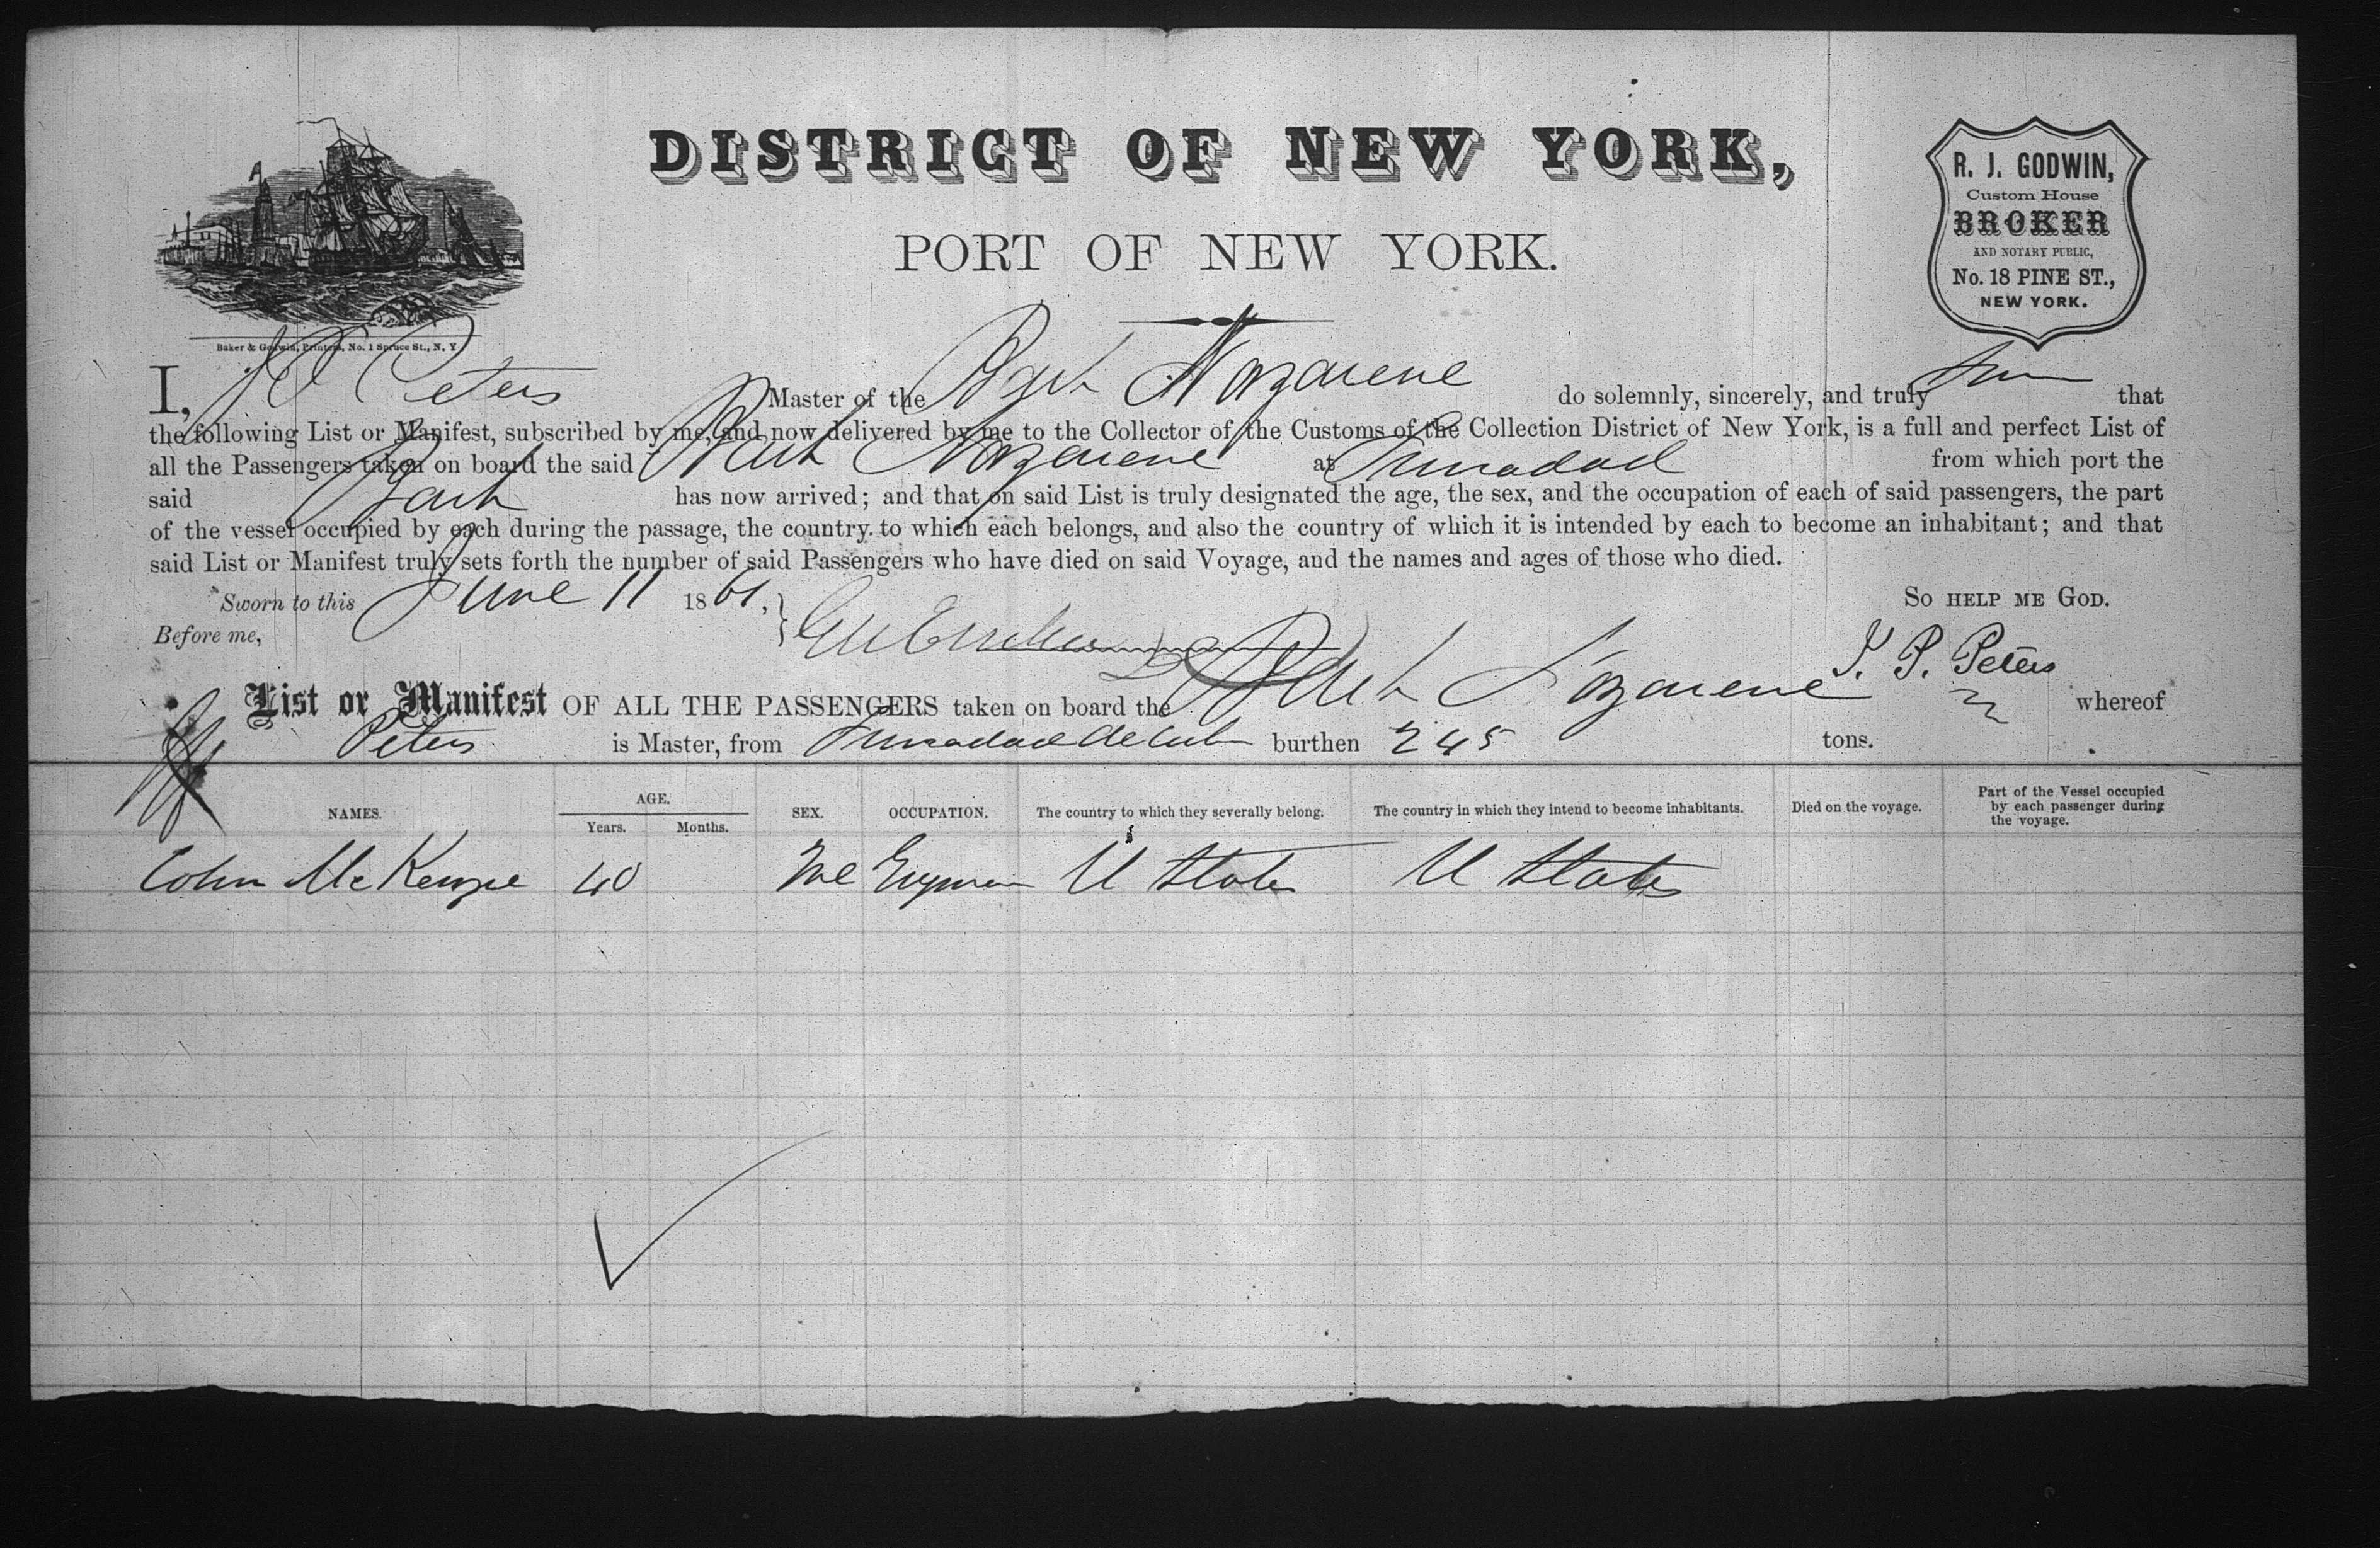 DISTRICT OF NEW YORK,
PORT OF NEW YORK.
R. J. GODWIN,
Custom House
BROKER
AND NOTARY PUBLIC,
No. 18 PINE ST.,
NEW YORK.
Baker & Godwin, Printers, No. 1 Spruce St., N. Y.
I, J P Peters Master of the Bark Nazarene do solemnly, sincerely, and truly that
the following List or Manifest, subscribed by me, and now delivered by me to the Collector of the Customs of the Collection District of New York, is a full and perfect List of
all the Passengers taken on board the said Bark Nazarene at Trinadad from which port the
said Bark has now arrived; and that on said List is truly designated the age, the sex, and the occupation of each of said passengers, the part
of the vessel occupied by each during the passage, the country to which each belongs, and also the country of which it is intended by each to become an inhabitant; and that
said List or Manifest truly sets forth the number of said Passengers who have died on said Voyage, and the names and ages of those who died.
Sworn to this June 11 1861, So HELP ME GOD.
Before me, J. P. Peters
List or Manifest OF ALL THE PASSENGERS taken on board the Bark Nazarene whereof
Peters is Master, from Trinadad de Cuba burthen 245 tons.
NAMES. AGE. Years. Months. SEX. OCCUPATION. The country to which they severally belong. The country in which they intend to become inhabitants. Died on the voyage. Part of the Vessel occupied by each passenger during the voyage.
McKenzie 40 U States U States